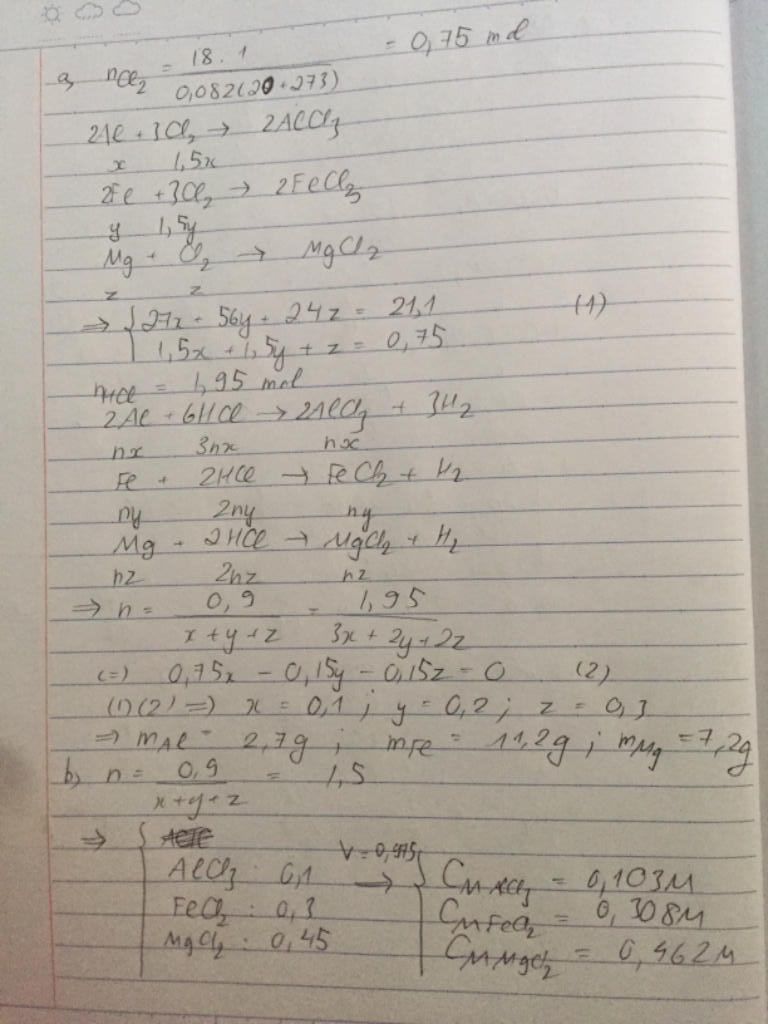 a, nCl₂ = 18.1 / 0,082(20+273) = 0,75 mol
2Al + 3Cl₂ → 2AlCl₃
x 1,5x
2Fe + 3Cl₂ → 2FeCl₃
y 1,5y
Mg + Cl₂ → MgCl₂
z z
⇒ { 27x + 56y + 24z = 21,1 (1)
1,5x + 1,5y + z = 0,75
nHCl = 1,95 mol
2Al + 6HCl → 2AlCl₃ + 3H₂
nx 3nx nx
Fe + 2HCl → FeCl₂ + H₂
ny 2ny ny
Mg + 2HCl → MgCl₂ + H₂
nz 2nz nz
⇒ n = 0,9 / x+y+z = 1,95 / 3x+2y+2z
(=) 0,75x - 0,15y - 0,15z = 0 (2)
(1)(2) ⇒ x = 0,1 ; y = 0,2 ; z = 0,3
⇒ mAl = 2,7g ; mFe = 11,2g ; mMg = 7,2g
b, n = 0,9 / x+y+z = 1,5
⇒ { AlCl₃ : 0,1 V = 0,975 → { CM AlCl₃ = 0,103M
FeCl₂ : 0,3 CM FeCl₂ = 0,308M
MgCl₂ : 0,45 CM MgCl₂ = 0,462M